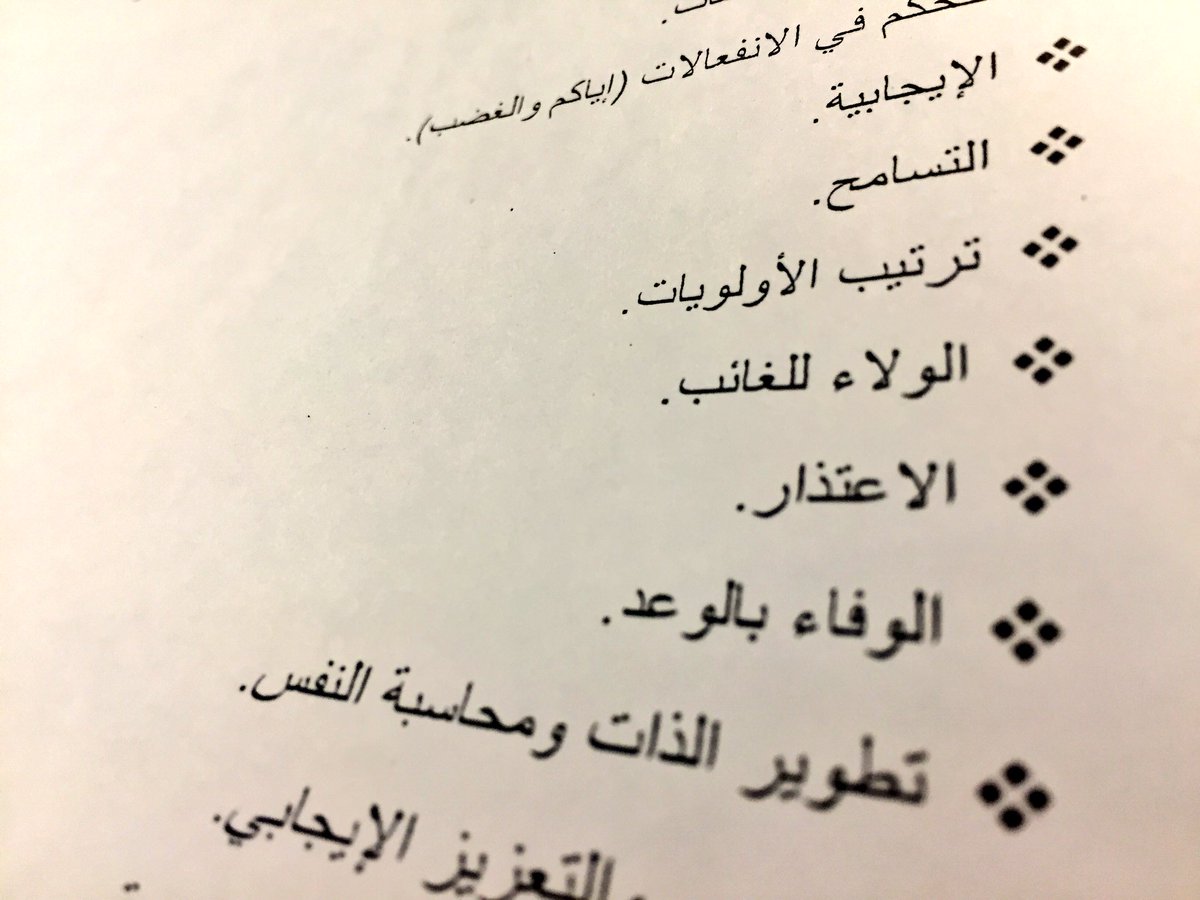 في الانفعالات (إياكم والغضب).
❖ الإيجابية.
❖ التسامح.
❖ ترتيب الأولويات.
❖ الولاء للغائب.
❖ الاعتذار.
❖ الوفاء بالوعد.
❖ تطوير الذات ومحاسبة النفس.
التعزيز الإيجابي.